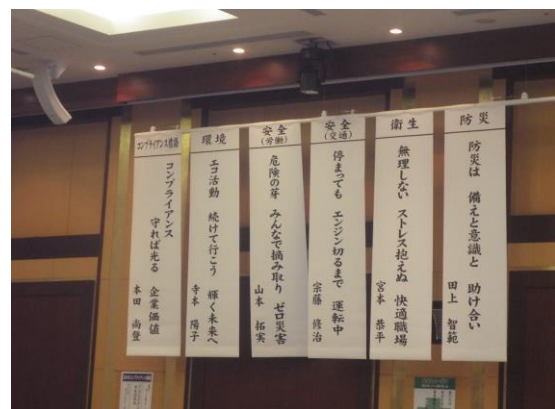 防災
防災は 備えと意識と 助け合い
田上 智範
衛生
無理しない ストレス抱えぬ 快適職場
宮本 恭平
安全
(交通)
停まっても エンジン切るまで 運転中
宗藤 修治
安全
(労働)
危険の芽 みんなで摘み取り ゼロ災害
山本 拓実
環境
エコ活動 続けて行こう 輝く未来へ
寺本 陽子
コンプライアンス
守れば光る 企業価値
本田 尚登